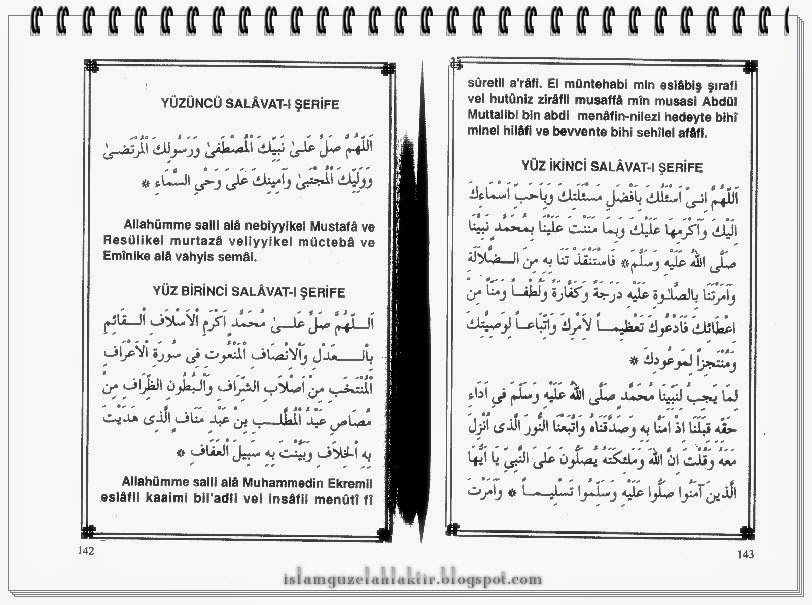 YÜZÜNCÜ SALÂVAT-I ŞERİFE
اَللّٰهُمَّ صَلِّ عَلٰى نَبِيِّكَ الْمُصْطَفٰى وَرَسُولِكَ الْمُرْتَضٰى
وَوَلِيِّكَ الْمُجْتَبٰى وَاَمِينِكَ عَلٰى وَحْيِ السَّمَاءِ *
Allahümme salli alâ nebiyyikel Mustafâ ve
Resülikel murtazâ veliyyikel müctebâ ve
Emînike alâ vahyis semâi.
YÜZ BİRİNCİ SALÂVAT-I ŞERİFE
اَللّٰهُمَّ صَلِّ عَلٰى مُحَمَّدٍ اَكْرَمِ الْاَسْلَافِ الْقَائِمِ
بِالْعَدْلِ وَالْاِنْصَافِ الْمَنْعُوتِ فِى سُورَةِ الْاَعْرَافِ
الْمُنْتَخَبِ مِنْ اَصْلَابِ الشِّرَافِ وَالْبُطُونِ الظِّرَافِ مِنْ
مُصَاصِ عَبْدِ الْمُطَّلِبِ بْنِ عَبْدِ مَنَافٍ الَّذِى هَدَيْتَ
بِهِ الْخِلَافِ وَبَيَّنْتَ بِهِ سَبِيلَ الْعَفَافِ *
Allahümme salli alâ Muhammedin Ekremil
eslâfil kaaimi bil'adli vel insâfil menûtî fî
142
sûretil a'râfi. El müntehabi min eslâbiş şirafi
vel hutûniz zirâfil musaffâ mîn musasi Abdül
Muttalibi bin abdi menâfin-nilezi hedeyte bihî
minel hilâfi ve beyvente bihi sehilel afâfi.
YÜZ İKİNCİ SALÂVAT-I ŞERİFE
اَللّٰهُمَّ اِنِّى اَسْئَلُكَ بِاَفْضَلِ مَسْئَلَتِكَ وَبِاَحَبِّ اَسْمَاءِكَ
اِلَيْكَ وَاَكْرَمِهَا عَلَيْكَ وَبِمَا مَنَنْتَ عَلَيْنَا بِمُحَمَّدٍ نَبِيِّنَا
صَلَّى اللّٰهُ عَلَيْهِ وَسَلَّمَ * فَاسْتَنْقَذْتَنَا بِهِ مِنَ الضَّلَالَةِ
وَاَمَرْتَنَا بِالصَّلٰوةِ عَلَيْهِ دَرَجَةً وَكَفَّارَةً وَلُطْفًا وَمَنًّا مِنْ
اِعْطَائِكَ فَاَدْعُوكَ تَعْظِيمًا لِاَمْرِكَ وَاتِّبَاعًا لِوَصِيَّتِكَ
وَمُنْتَجِزًا لِمَوْعُودِكَ *
لِمَا يَجِبُ لِنَبِيِّنَا مُحَمَّدٍ صَلَّى اللّٰهُ عَلَيْهِ وَسَلَّمَ فِى اَدَاءِ
حَقِّهِ قِبَلَنَا اِذْ اٰمَنَّا بِهِ وَصَدَّقْنَاهُ وَاتَّبَعْنَا النُّورَ الَّذِى اُنْزِلَ
مَعَهُ وَقُلْتَ اِنَّ اللّٰهَ وَمَلٰئِكَتَهُ يُصَلُّونَ عَلَى النَّبِيِّ يَا اَيُّهَا
الَّذِينَ اٰمَنُوا صَلُّوا عَلَيْهِ وَسَلِّمُوا تَسْلِيمًا * وَاَمَرْتَ
143
islamguzelahlaktir.blogspot.com